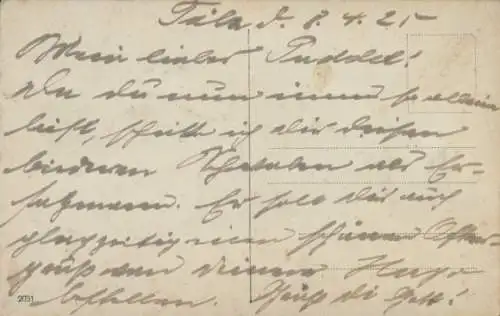 d. 8.4.25
Mein lieber Rudolf!
Da du nun immer so allein
bist, schicke ich dir diesen
biederen als Er-
satzmann. Er soll dir auch
gleichzeitig einen schönen Oster
gruß von deinem Hugo
bestellen. Grüß di Gott!
2031